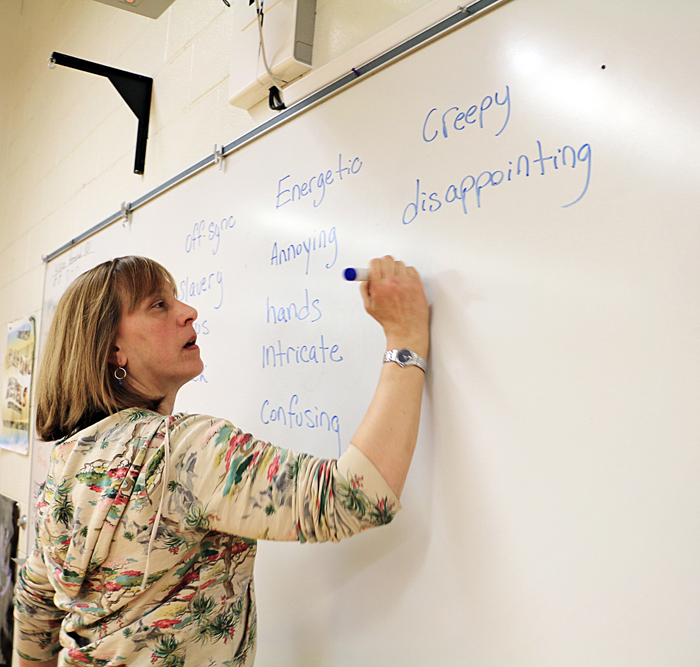 off-sync
slavery
Energetic
Annoying
hands
Intricate
Confusing
Creepy
disappointing